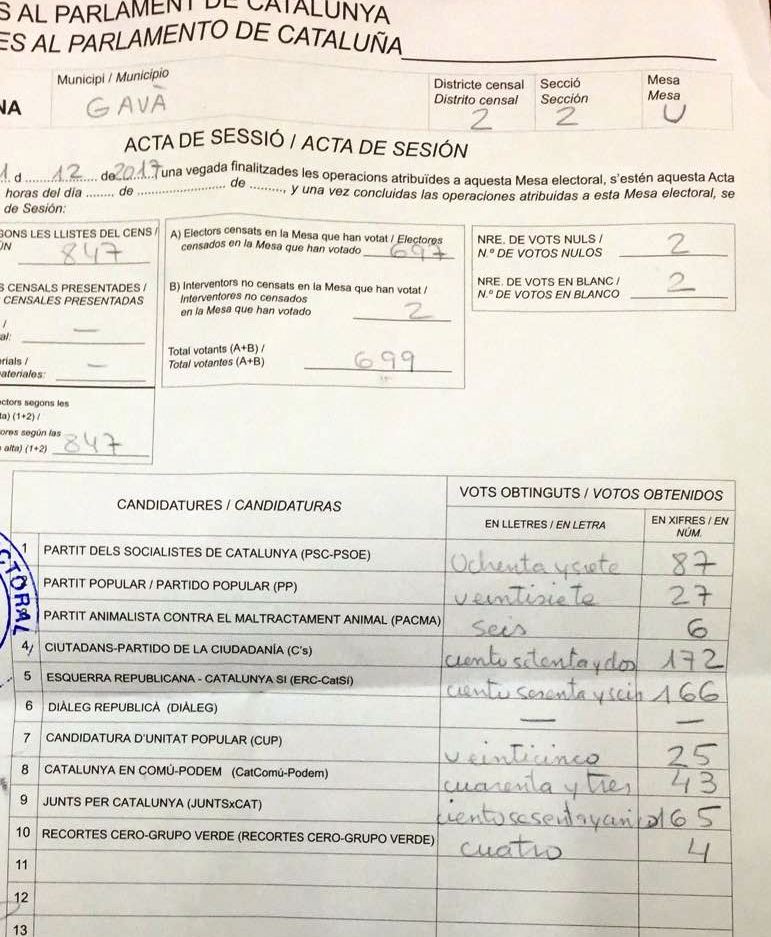 S AL PARLAMENT DE CATALUNYA
ES AL PARLAMENTO DE CATALUÑA
NA
Municipi / Municipio
GAVÀ
Districte censal
Distrito censal
2
Secció
Sección
2
Mesa
Mesa
U
ACTA DE SESSIÓ / ACTA DE SESIÓN
1 d ........ 12 ..... de 2017 una vegada finalitzades les operacions atribuïdes a aquesta Mesa electoral, s'estén aquesta Acta
horas del día ....... de ........................ de ........., y una vez concluidas las operaciones atribuidas a esta Mesa electoral, se
de Sesión:
SONS LES LLISTES DEL CENS /
ÓN
847
S CENSALS PRESENTADES /
CENSALES PRESENTADAS
/
al: —
rials /
ateriales: —
ectors segons les
ta) (1+2) /
ores según las
alta) (1+2) 847
A) Electors censats en la Mesa que han votat / Electores
censados en la Mesa que han votado 697
B) Interventors no censats en la Mesa que han votat /
Interventores no censados
en la Mesa que han votado 2
Total votants (A+B) /
Total votantes (A+B) 699
NRE. DE VOTS NULS /
N.º DE VOTOS NULOS 2
NRE. DE VOTS EN BLANC /
N.º DE VOTOS EN BLANCO 2
CANDIDATURES / CANDIDATURAS
VOTS OBTINGUTS / VOTOS OBTENIDOS
EN LLETRES / EN LETRA
EN XIFRES / EN
NÚM.
1 PARTIT DELS SOCIALISTES DE CATALUNYA (PSC-PSOE) Ochenta y siete 87
PARTIT POPULAR / PARTIDO POPULAR (PP) veintisiete 27
PARTIT ANIMALISTA CONTRA EL MALTRACTAMENT ANIMAL (PACMA) Seis 6
4 CIUTADANS-PARTIDO DE LA CIUDADANÍA (C's) ciento setenta y dos 172
5 ESQUERRA REPUBLICANA - CATALUNYA SI (ERC-CatSí) ciento sesenta y seis 166
6 DIÀLEG REPUBLICÀ (DIÀLEG) — —
7 CANDIDATURA D'UNITAT POPULAR (CUP) veinticinco 25
8 CATALUNYA EN COMÚ-PODEM (CatComú-Podem) cuarenta y tres 43
9 JUNTS PER CATALUNYA (JUNTSxCAT) ciento sesenta y cinco 165
10 RECORTES CERO-GRUPO VERDE (RECORTES CERO-GRUPO VERDE) cuatro 4
11
12
13
CTORAL